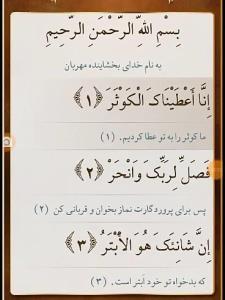 بِسْمِ اللَّهِ الرَّحْمَنِ الرَّحِيمِ
به نام خدای بخشاینده مهربان
إِنَّا أَعْطَيْنَاكَ الْكَوْثَرَ ﴿۱﴾
ما کوثر را به تو عطا کردیم. (۱)
فَصَلِّ لِرَبِّكَ وَانْحَرْ ﴿۲﴾
پس برای پروردگارت نماز بخوان و قربانی کن (۲)
إِنَّ شَانِئَكَ هُوَ الْأَبْتَرُ ﴿۳﴾
که بدخواه تو خود اَبتر است. (۳)